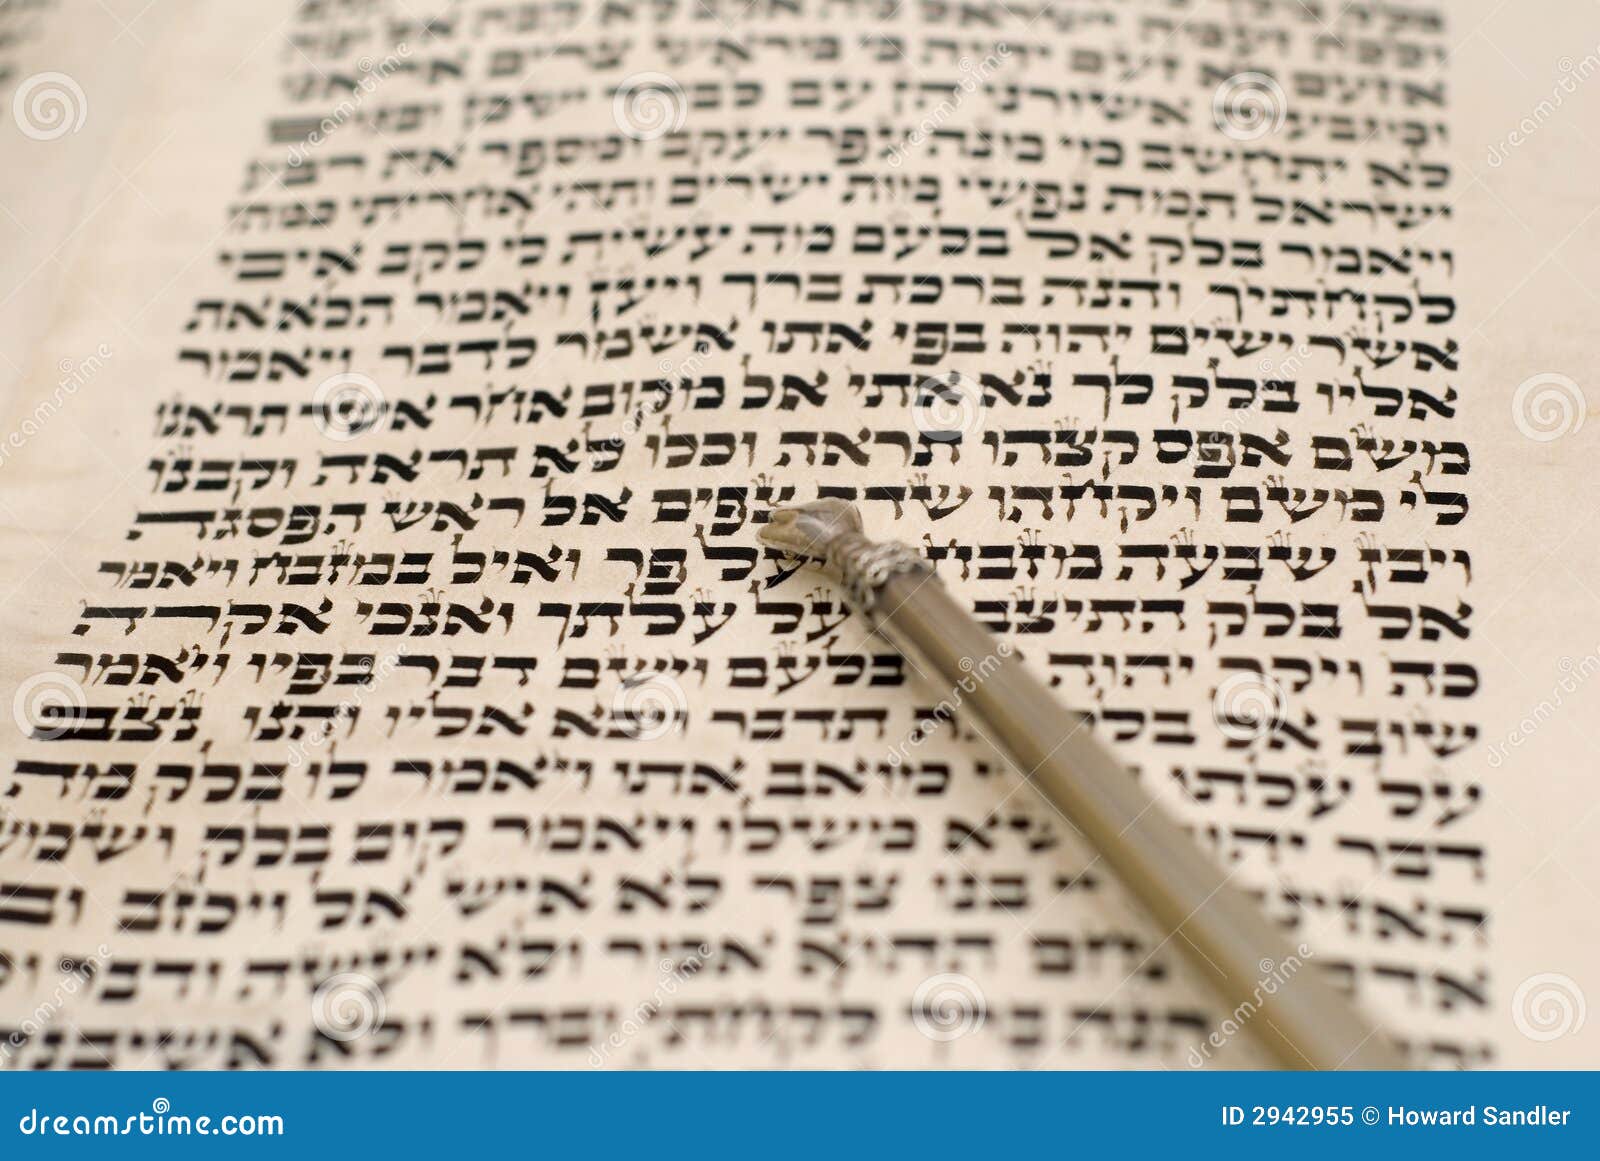 אזעם לא זעם יהוה כי מראש צרים אראנו
אשורנו הן עם לבדד ישכן
לא יתחשב מי מנה עפר יעקב ומספר את רבע
ישראל תמת נפשי מות ישרים ותהי אחריתי כמהו
ויאמר בלק אל בלעם מה עשית לי לקב איבי
לקחתיך והנה ברכת ברך ויען ויאמר הלא את
אשר ישים יהוה בפי אתו אשמר לדבר ויאמר
אליו בלק לך נא אתי אל מקום אחר אשר תראנו
משם אפס קצהו תראה וכלו לא תראה וקבנו
לי משם ויקחהו שדה צפים אל ראש הפסגה
ויבן שבעה מזבחת ויעל פר ואיל במזבח ויאמר
אל בלק התיצב על עלתך ואנכי אקרה
כה ויקר יהוה בלעם וישם דבר בפיו ויאמר
שוב אל בלק תדבר ויבא אליו והנו נצב
על עלתו מואב אתו ויאמר לו בלק מה
דבר משלו ויאמר קום בלק ושמע
בנו צפר לא איש אל ויכזב ובן
ההוא אמר ולא יעשה ודבר
הנה ברך לקחתי וברך ולא אשיבנה
dreamstime.com
ID 2942955 © Howard Sandler